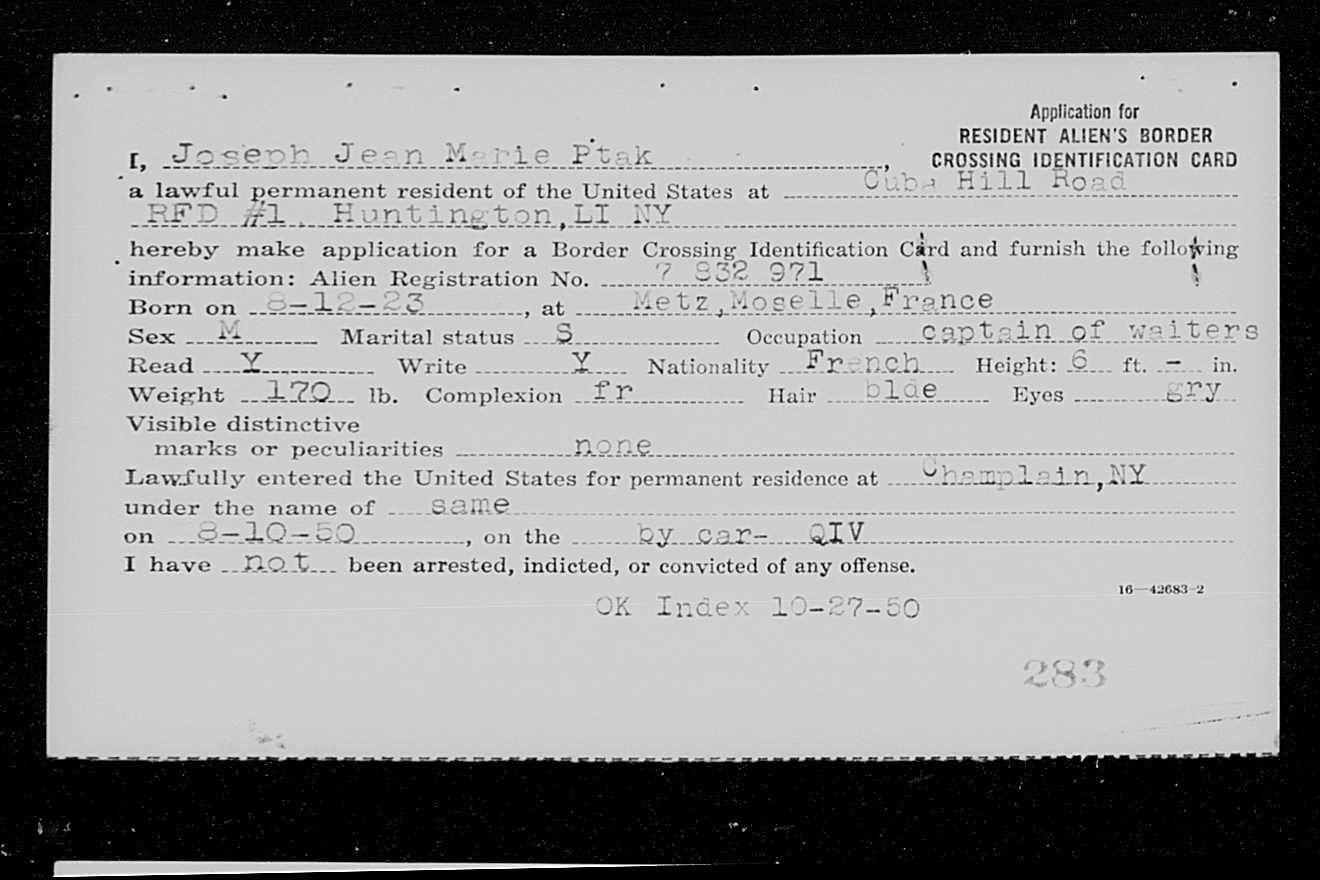 Application for
RESIDENT ALIEN'S BORDER
CROSSING IDENTIFICATION CARD
I, Joseph Jean Marie Ptak,
a lawful permanent resident of the United States at Cuba Hill Road
RFD #1, Huntington,LI NY
hereby make application for a Border Crossing Identification Card and furnish the following
information: Alien Registration No. 7 832 971
Born on 8-12-23, at Metz,Moselle,France
Sex M Marital status S Occupation captain of waiters
Read Y Write Y Nationality French Height: 6 ft. - in.
Weight 170 lb. Complexion fr Hair blde Eyes gry
Visible distinctive
marks or peculiarities none
Lawfully entered the United States for permanent residence at Champlain,NY
under the name of same
on 8-10-50, on the by car- QIV
I have not been arrested, indicted, or convicted of any offense.
16—42683-2
OK Index 10-27-50
283